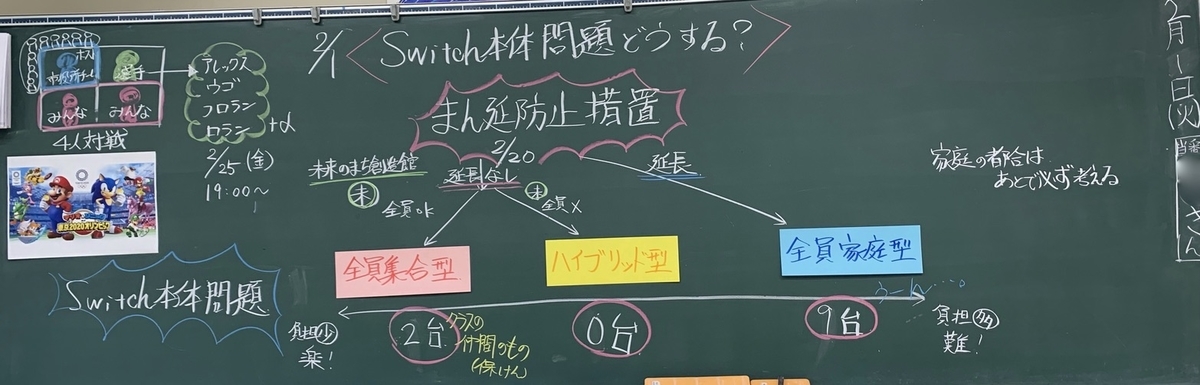 2/1 〈Switch本体問題どうする?〉
2月1日(火)
当番
さん
ホスト
選手
みんな みんな
4人対戦
アレックス
ウゴ
フロラン
ロラン
+α
2/25(金)
19:00~
東京2020オリンピック
まん延防止措置
2/20
未来のまち創造館
延長なし
延長
未
全員ok
未
全員×
家庭の都合は
あとで必ず考える
全員集合型
ハイブリッド型
全員家庭型
Switch本体問題
うーん…
負担少
楽!
2台
クラスの
仲間のもの
(保けん)
0台
9台
負担多
難!